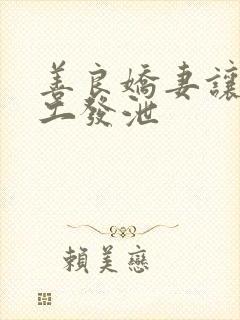 善良嬌妻讓
工發泄
賴美戀